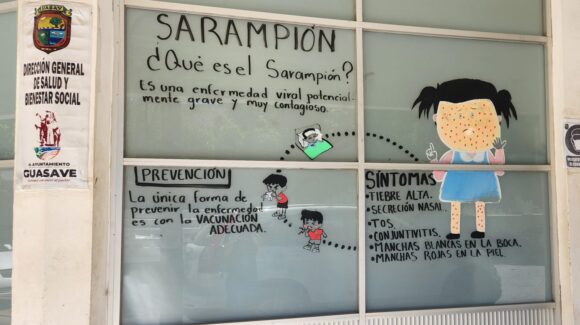 DIRECCIÓN GENERAL
DE SALUD Y
BIENESTAR SOCIAL
H. AYUNTAMIENTO
GUASAVE
SARAMPIÓN
¿Qué es el Sarampión?
Es una enfermedad viral potencial-
mente grave y muy contagioso.
PREVENCIÓN
La única forma de
prevenir la enfermedad
es con la VACUNACIÓN
ADECUADA.
SÍNTOMAS
• FIEBRE ALTA.
• SECRECIÓN NASAL.
• TOS.
• CONJUNTIVITIS.
• MANCHAS BLANCAS EN LA BOCA.
• MANCHAS ROJAS EN LA PIEL.